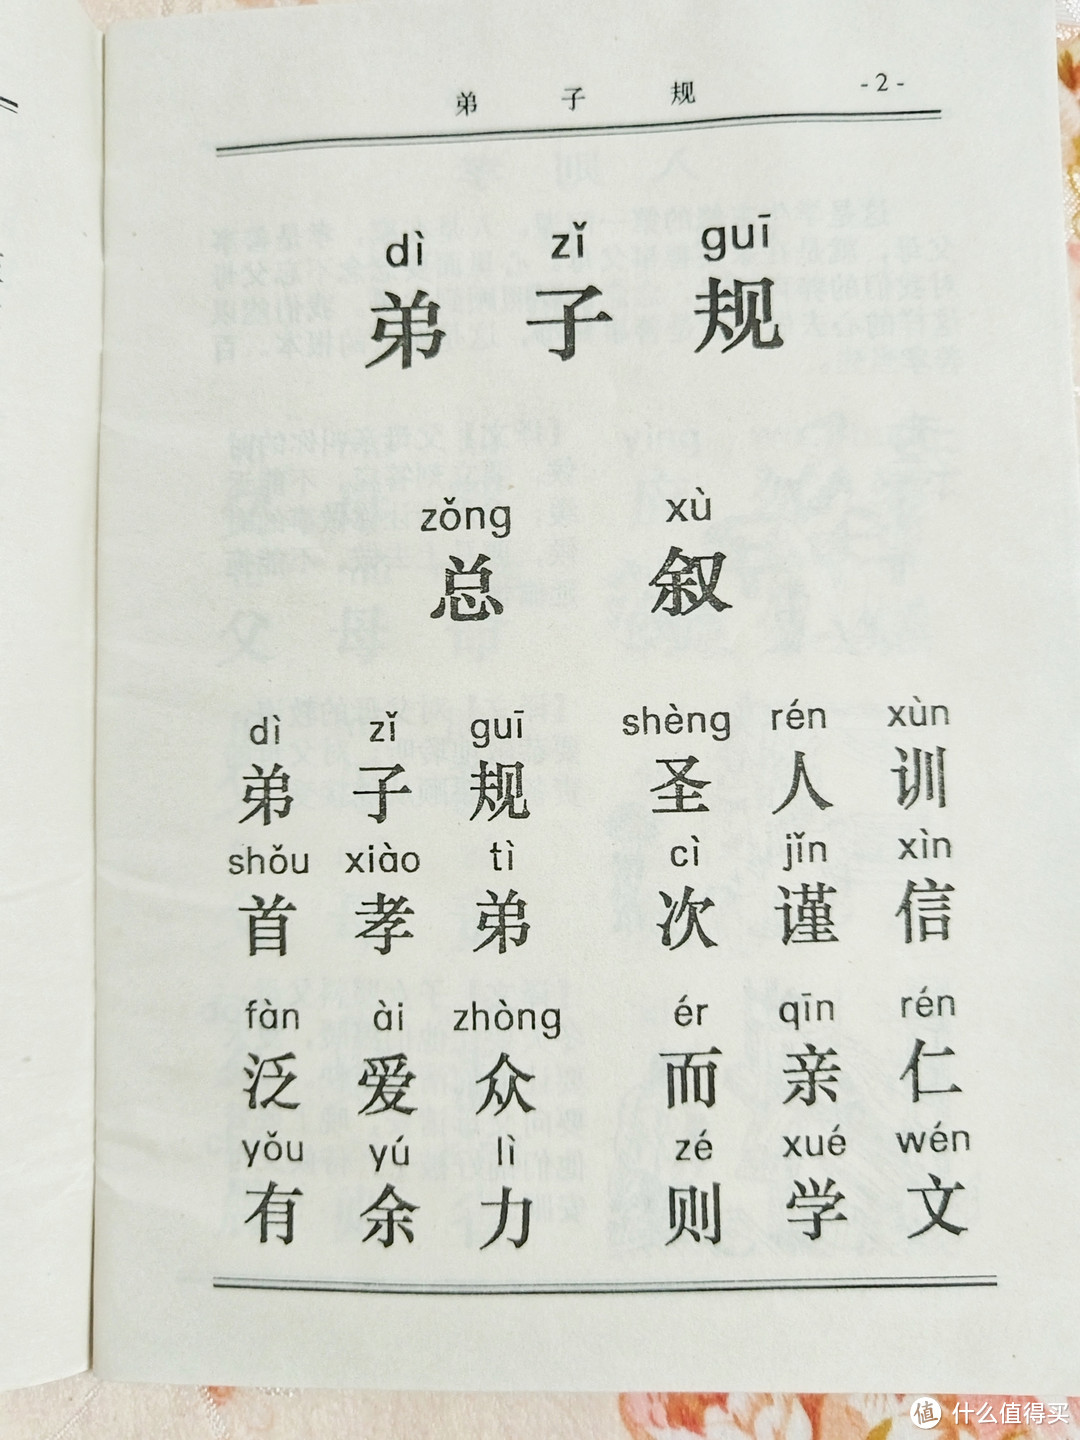 弟 子 规 -2-
dì zǐ guī
弟 子 规
zǒng xù
总 叙
dì zǐ guī shèng rén xùn
弟 子 规 圣 人 训
shǒu xiào tì cì jǐn xìn
首 孝 弟 次 谨 信
fàn ài zhòng ér qīn rén
泛 爱 众 而 亲 仁
yǒu yú lì zé xué wén
有 余 力 则 学 文
值 什么值得买